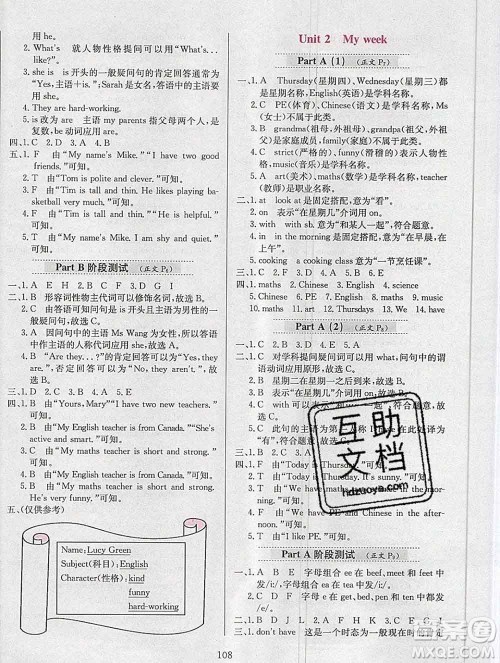 用 he。
2. What's 就人物性格提问可以用"What's ... like?"
3. she is 开头的一般疑问句的肯定回答通常为
"Yes, 主语＋is."; Sarah 是女名,答语中的主语要
用 she。
4. They are hard-working.
5. is 改为 are 主语 my parents 指父母两个人,是
复数,be 动词用 are。
四、1. C 2. D 3. A 4. B
五、1. F 由"My name's Mike."" I have two good
friends."可知。
2. T 由"Tom is polite and clever."可知。
3. F 由"Tim is tall and thin. He likes playing bas-
ketball very much."可知。
4. T 由"Tim is tall and thin."" He is helpful."
可知。
5. T 由"My name is Mike. I am shy and quiet."
可知。
Part B 阶段测试 (正文 P5)
一、1. D 2. B 3. E 4. C 5. A
二、1. B 形容词性物主代词可以修饰名词,故选 B。
2. C 由答语可知,此句是以 is 开头的一般疑问
句,故选 C。
3. A 因问句中的主语 Ms Wang 为女性,所以答
语中主语的人称代词应用 she,故选 A。
4. B "Are they...?"的肯定回答可以用"Yes, they
are.",否定回答可以用"No, they aren't.",故
选 B。
三、1. D 2. C 3. E 4. B 5. A
四、1. B 由"Yours, Mary""I have two new teachers."
可知。
2. B 由"My English teacher is from Canada."" She's
funny and kind."可知。
3. B 由"My maths teacher is short and strong."
可知。
4. T 由"My English teacher is from Canada."可知。
5. F 由"My maths teacher is short and strong.
He is very funny and kind."可知。
五、(仅供参考)
Name: Lucy Green
Subject(科目): English
Character(性格): kind
funny
hard-working
Unit 2 My week
Part A (1) (正文 P7)
一、1. A Thursday(星期四), Wednesday(星期三)都
是星期名称, English(英语)是学科名称。
2. C PE(体育), Chinese(语文)是学科名称, Ms
(女士)不属于此类。
3. B grandma(祖母,外祖母), grandpa(祖父,外祖
父)是家庭成员名称, family(家庭)不属于此类。
4. C strict(严格的), funny(滑稽的)表示人物性格
特征, maths(数学)是学科名称。
5. A art(美术), maths(数学)是学科名称, teacher
(教师)是职业名称。
二、1. at look at 是固定搭配,意为"看"。
2. on 表示"在星期几"介词用 on。
3. with with sb. 意为"和某人一起",符合题意。
4. in in the morning 是固定搭配,意为"在早晨,
在上午"。
5. cooking a cooking class 意为"一节烹饪课"。
三、1. D 2. F 3. D 4. G 5. A 6. E
四、1. maths 2. Chinese 3. English 4. music
5. maths 6. PE 7. science 8. English 9. music
10. maths
Part A (2) (正文 P8)
一、1. B 2. A 3. D 4. C
二、1. C 对学科提问疑问词可以用 what,问句中的谓
语动词应用原形,故选 C。
2. B 星期二在星期一和星期三中间,故选 B。
3. A 表示"在星期几"介词用 on,故选 A。
4. C with
5. C 此句的主语为第三人称
三、1. D
四、1. F 由"Today is
2. F 由"Today is Thursday."可知。
3. T 由"We have maths,
4. F 由"We have
PE and Chinese in the afternoon."可知。
5. T 由"I like PE."可知。
Part A 阶段测试 (正文 P9)
一、1. A B E 字母组合 ee 在 beef, meet 和 feet 中
发/iː/,符合题意。
2. A C D 字母组合 ee 在
发/iː/,符合题意。
二、1. don't have 这是一个时态为一般现在时的否定
108
互助
文档
hdzuoye.com
答案圈
MXQE.COM